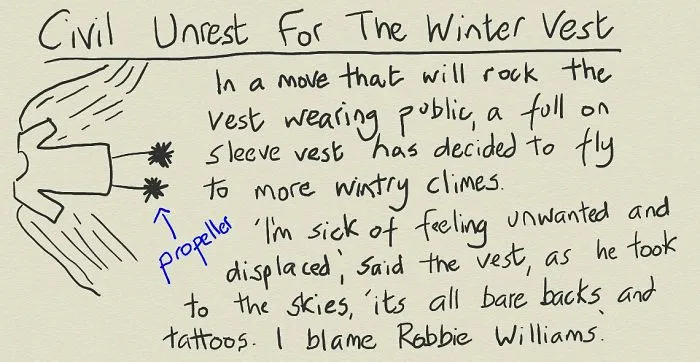 Civil Unrest For The Winter Vest
In a move that will rock the
vest wearing public, a full on
sleeve vest has decided to fly
to more wintry climes.
propeller
'I'm sick of feeling unwanted and
displaced', said the vest, as he took
to the skies, 'its all bare backs and
tattoos. I blame Robbie Williams.'